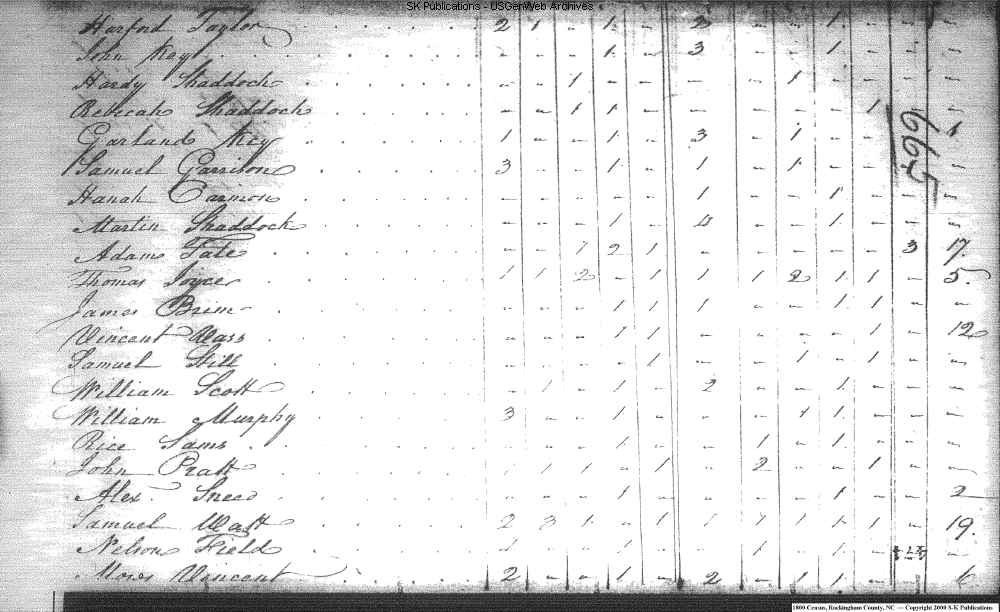 SK Publications - USGenWeb Archives
Harford Taylor 2 1 - 1 - 2 - - 1 - - -
John Key - - - 1 - 3 - - 1 - - -
Hardy Shaddock - - 1 - - - - 1 - - - -
Rebecah Shaddock - - 1 1 - - - - - 1 - 1
Garland Key 1 - - 1 - 3 - 1 - - - -
665
Samuel Garrison 3 - - 1 - 1 - 1 - - - -
Hanah - - - - - 1 - - 1 - - -
Martin Shaddock - - - 1 - 4 - - 1 - - -
Adam Tate - - 1 2 1 - - - - - 3 17.
Thomas Joyce 1 1 2 - 1 1 1 2 1 1 - 5.
James Brim - - - 1 1 1 - - 1 1 - -
Vincent Wass - - - 1 1 - - - - 1 - 12
Samuel Hill - - - - 1 - - 1 - 1 - -
William Scott - 1 - 1 - 2 - - 1 - - -
William Murphy 3 - - 1 - - - 1 1 - - -
Rice Sams - - - 1 - - 1 - 1 - - -
John Pratt 1 1 1 - 1 - 2 - - 1 - -
Alex. Sneed - - - 1 - - - - 1 - - 2
Samuel Watt 2 3 1 - 1 1 1 1 1 1 - 19.
Nelson Field 1 - - 1 - - 1 - 1 -
Moses Vincent 2 - - 1 - 2 - 1 1 - - 6
1800 Census, Rockingham County, NC — Copyright 2000 S-K Publications